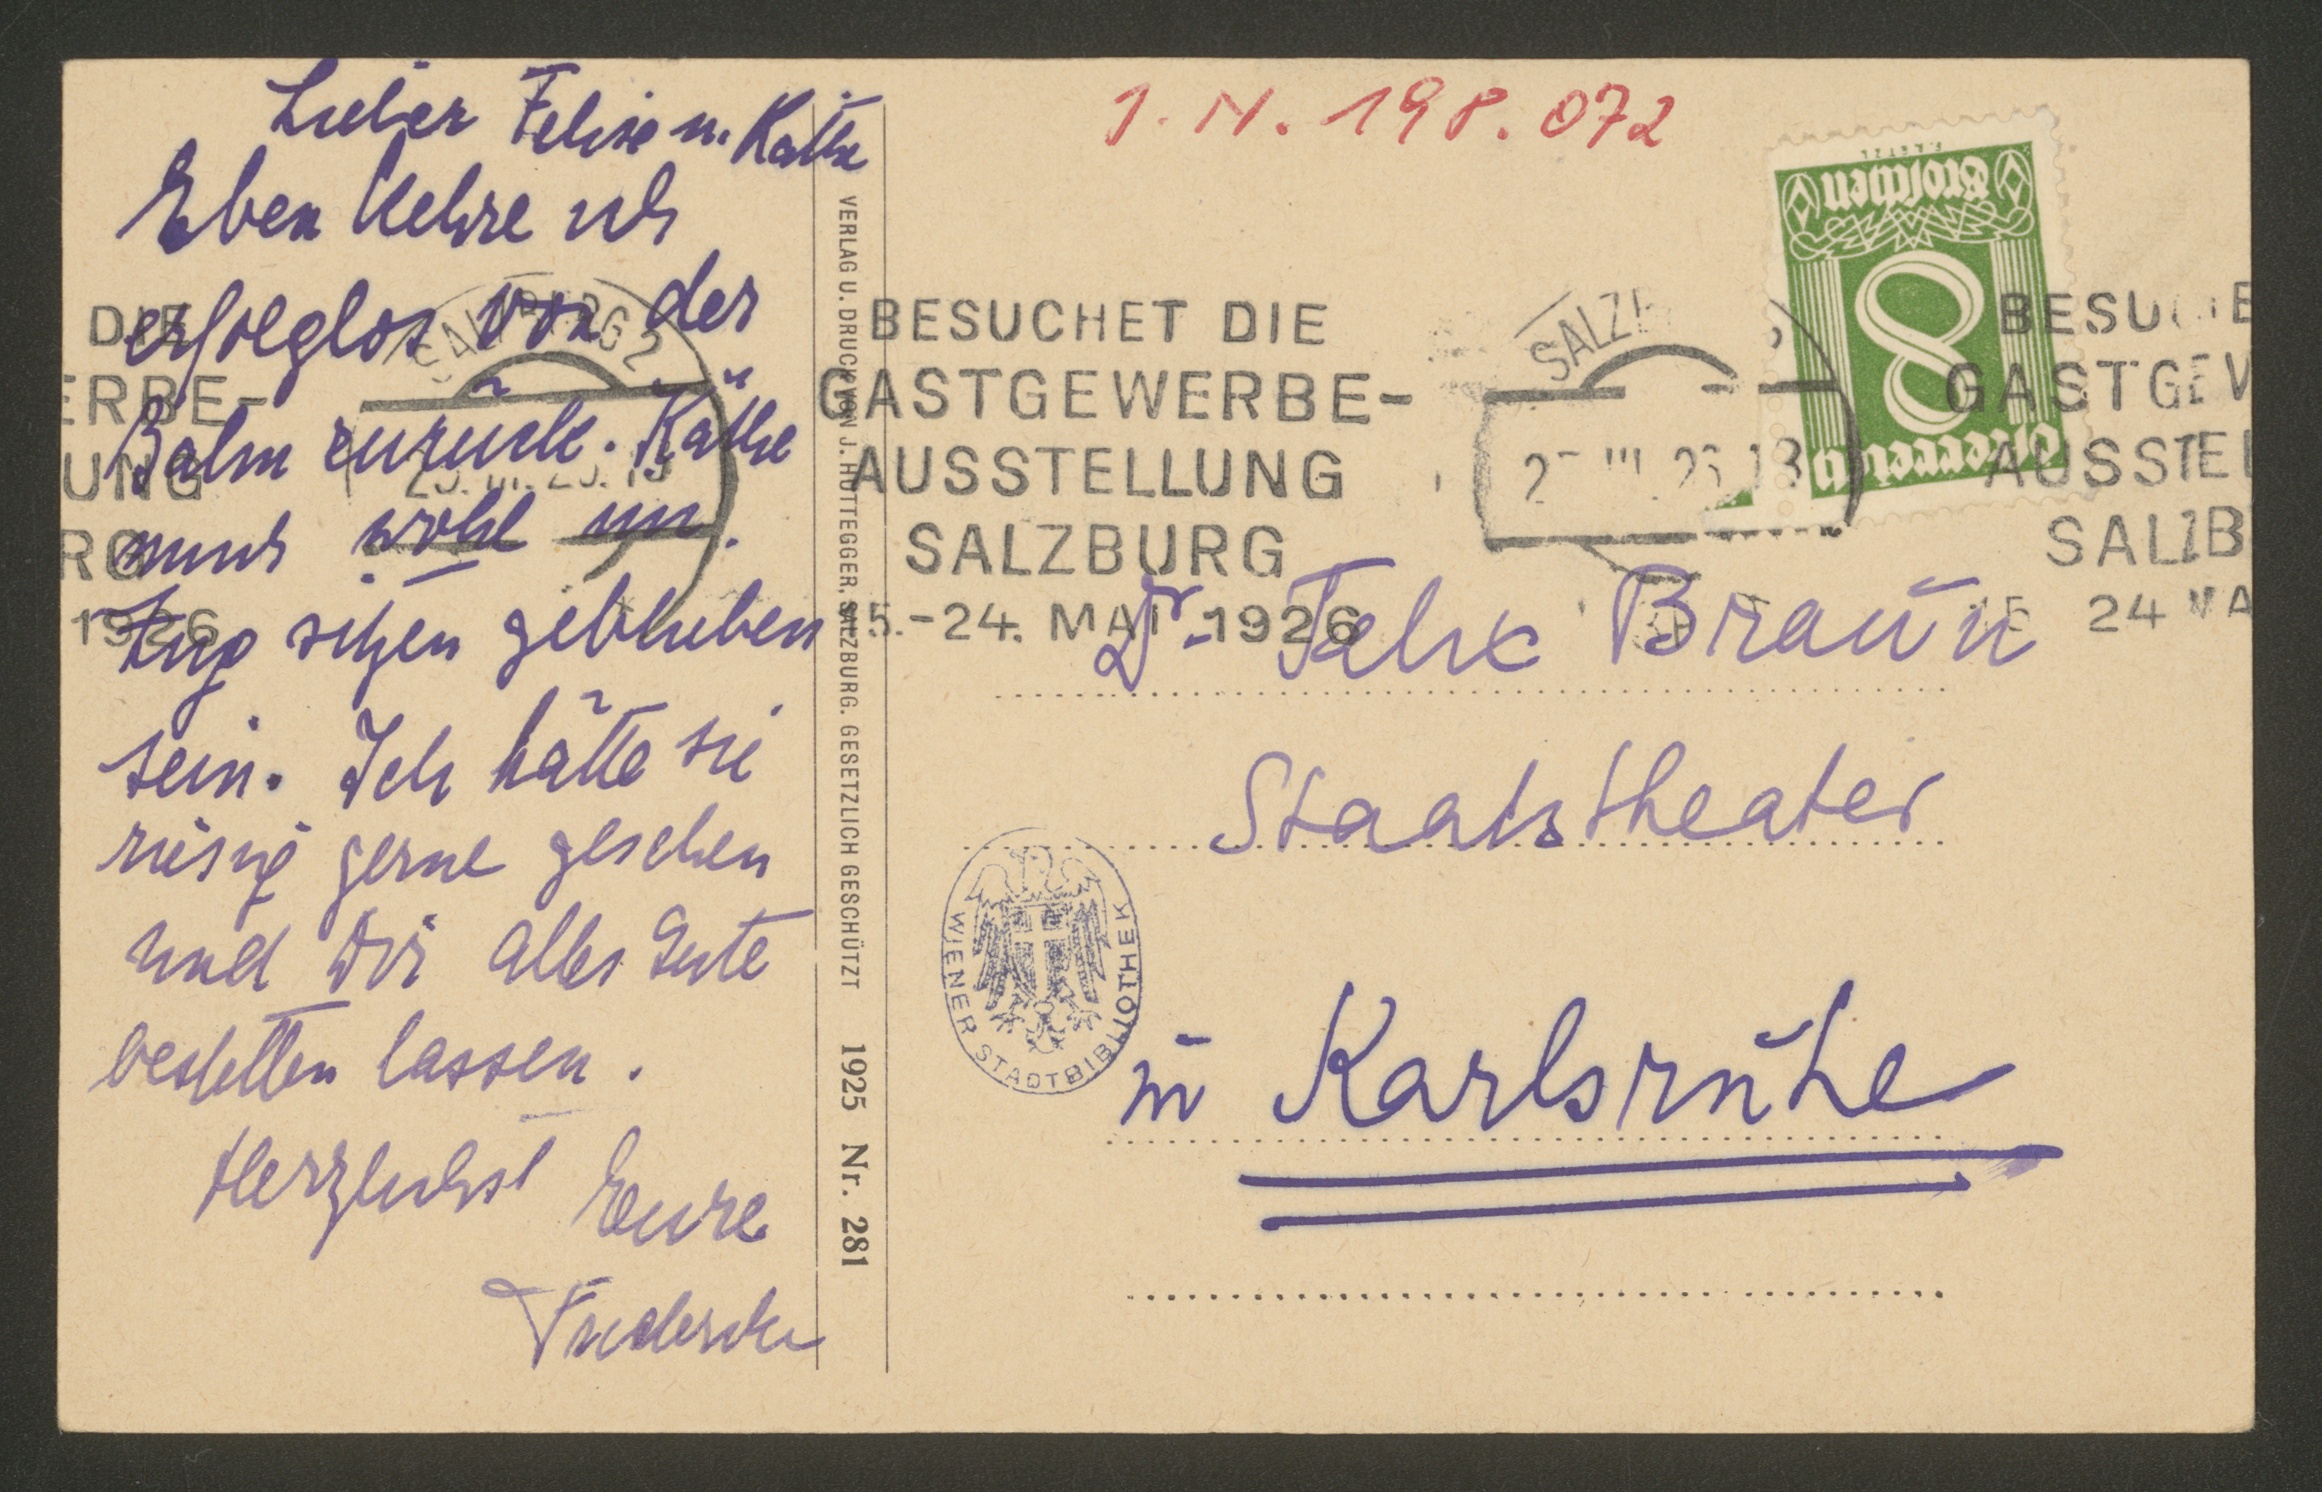 Lieber Felix u. Käthe
Eben kehre ich
erfolglos von der
Bahn zurück. Käthe
muss wohl im
Zug sitzen geblieben
sein. Ich hätte sie
riesig gerne gesehen
und Dir alles Gute
bestellen lassen.
Herzlichst Eure
Friderike
VERLAG U. DRUCK VON J. HUTTEGGER, SALZBURG. GESETZLICH GESCHÜTZT 1925 Nr. 281
I. N. 198.072
F. LOTZL
Groschen
8
Österreich
DIE
ERBE-
UNG
RG
1926
SALZBURG 2
BESUCHET DIE
GASTGEWERBE-
AUSSTELLUNG
SALZBURG
15.-24. MAI 1926
SALZB
III. 26 18
BESUCHE
GASTGEW
AUSSTEL
SALZB
15 24 MA
Dr. Felix Braun
Staatstheater
in Karlsruhe
WIENER STADTBIBLIOTHEK